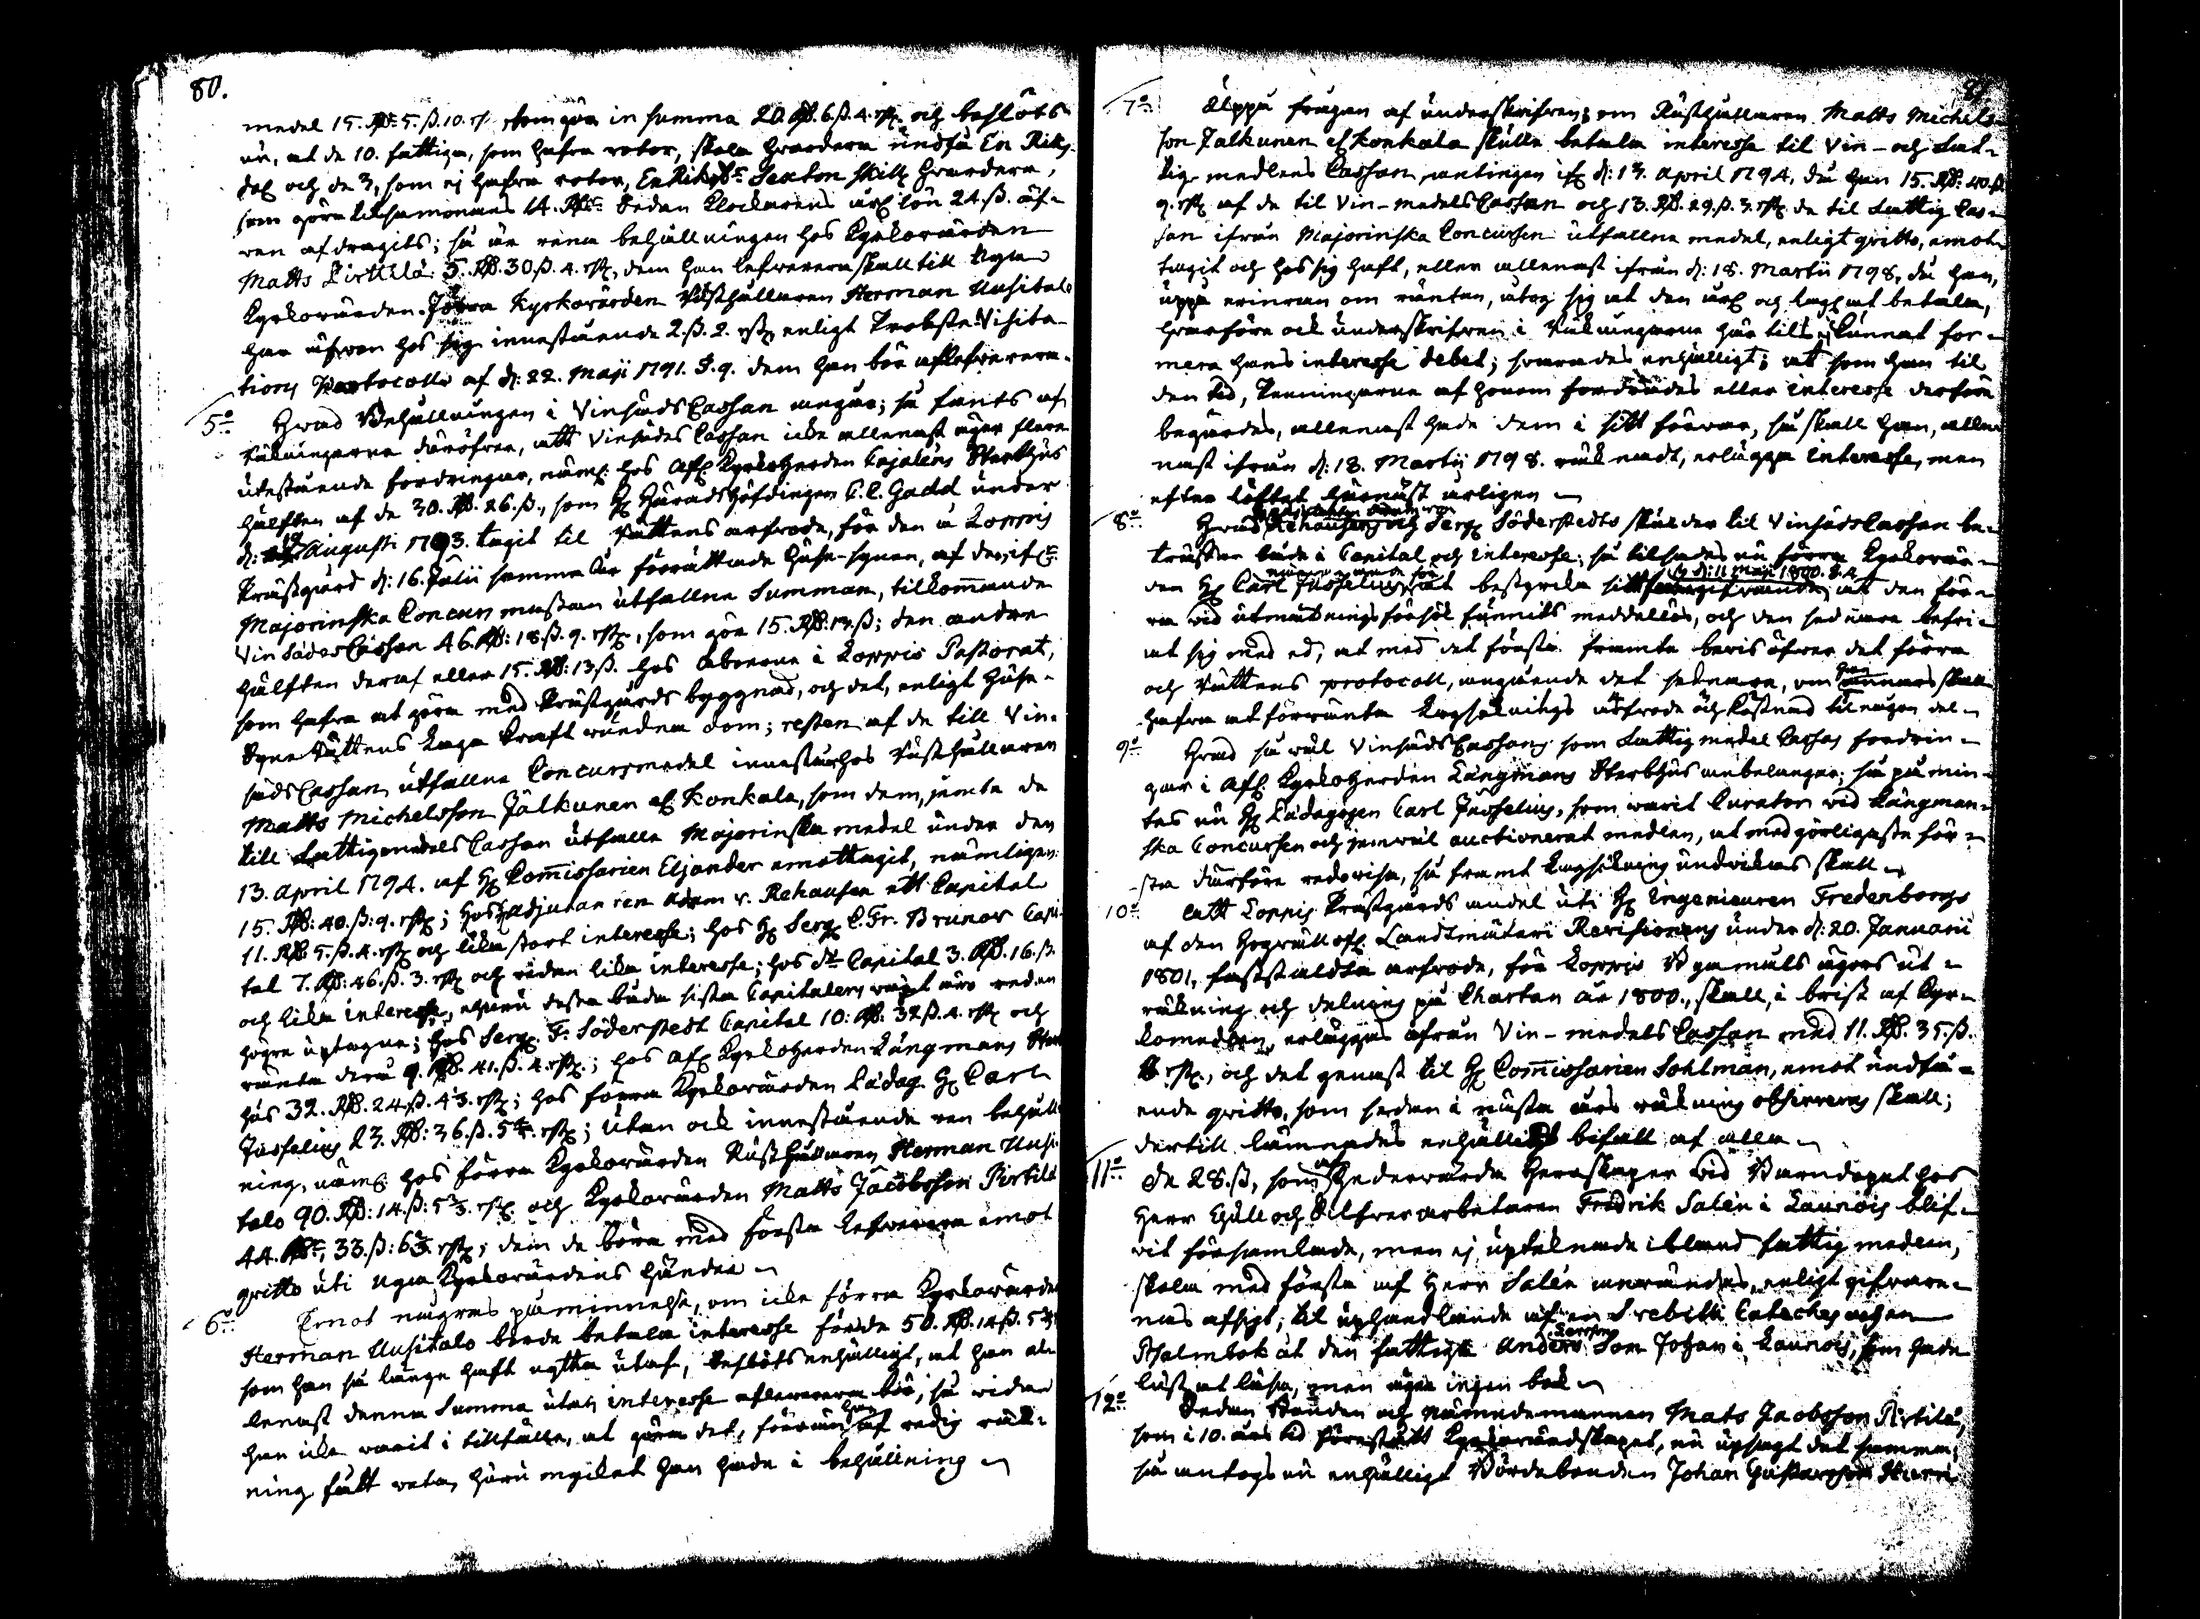 80.
medel 15. Rd. 5. ß. 10. rs. som göra in summa 20. Rd. 6. ß. 4. rst. och beslöts
nu, at de 10. fattiga, som hafva rotor, skola hvardera undfå En Riks-
dal. och de 3, som ej hafva rotor, En Riksd. Sexton skill. hvardera,
som göra tilsammans 14. Rd. Sedan Klockarens årl. lön 24. ß. äf-
ven afdragits; så är rena behållningen hos Kyrkovärden
Matts Pirttilä 5. Rd. 30 ß. 4. rst., dem han lefverera skall till Nya
Kyrkovärden. Förra Kyrkovärden Rusthållaren Herman Uusitalo
har äfven hos sig innestående 2. ß. 2. rst. enligt Probste-Visita-
tions Protocollo af d: 22. Maji 1791. §. 9. dem han bör aflefverera.
5:o Hvad Behållningen i Vinsäds Cassan angår; så fants af
räkningarna däröfver, att Vinsädes Cassan icke allenast äger flera
utestående fordringar, näml. hos afl. Kyrkoherden Cajaléns Sterbhus
hälften af de 30. Rd. 26. ß., som H. Häradshöfdingen C. C. Gadd under
d: 19 Augusti 1793. tagit til Rättens arfvode, för den å Loppis
Prästgård d: 16. Julii samma år förrättade Huse-synen, af de, if.
Majorinska Concurs massan utfallne Summan, tilkommande
Vin Sädes Cassan 46. Rd: 18. ß. 9. rst., som gör 15. Rd. 13. ß; den andra
hälften deraf eller 15. Rd: 13 ß. hos Åboerne i Loppis Pastorat,
som hafva at göra med Prästgårds byggnad, och det, enligt Huse-
Syne Rättens laga kraft vundna dom; resten af de till Vin-
säds Cassan utfallne Concursmedel innestår hos Rusthållaren
Matts Michelsson Jälkunen el. Konkala, som dem, jemte de
till Fattigmedels Cassan utfalla Majorinska medel under den
13. April 1794. af H. Commissarien Eljander emottagit, nämligen
15. Rd: 40. ß: 9. rst.; hos H. Adjutanten Adam v. Rehausen ett Capital
11. Rd. 5. ß. 4. rst. och lika stort interesse; hos H. Serg. C. Fr. Brunov Capi-
tal 7. Rd: 46. ß. 3. rst. och redan lika interesse; hos do Capital 3. Rd. 16. ß.
och lika interesse, ehuru dessa båda sista Capitalers ränt äro redan
högre uptagne; hos Serg. F. Söderstedt Capital 10: Rd. 32 ß. 4. rst. och
ränta derå 9. Rd. 41. ß. 4. rst.; hos afl. Kyrkoherden Långmans Sterb
hus 32. Rd. 24 ß. 4⅓. rst; hos förra Kyrkovärden Pädag. H. Carl
Jusselius 27. Rd: 36. ß. 5⅔. rst.; utan ock innestående ren behåll-
ning, näml. hos förra Kyrkovärden Rusthållaren Herman Uusi-
talo 90. Rd: 14. ß: 5⅔. rst. och Kyrkovärden Matts Jacobsson Pirtilä
44. Rd. 33. ß: 6⅔. rst.; dem de böra med första lefverera emot
qvitto uti nya Kyrkovärdens händer.
6:o Emot någras påminnelse, om icke förra Kyrkovärden
Herman Uusitalo borde betala interesse för de 50. Rd. 14 ß. 5⅔
som han så länge haft nytta utaf, beslöts enhälligt, at han al-
lenast denna Summa utan interesse aflevrera bör; så vida
han icke varit i tillfälle, at göra det, förrän han af redig räk-
ning fått veta, huru mycket han hade i behållning
81
7:o Uppå frågan af underskrifven; om Rusthållaren Matts Michels-
son Jalkunen el Konkala skulle betala interesse til Vin- och Fat-
tig-medlens Cassan, antingen if. d: 13. April 1794, då han 15. Rd: 40. ß
9. rst. af de til Vin-medels Cassan och 13. Rd. 29. ß. 3. rst. de til Fattig Cas-
san ifrån Majorinska Concursen utfallne medel, enligt qvitto, emot-
tagit och hos sig haft, eller allenast ifrån d: 18. Martii 1798, då han,
uppå erinran om räntan, utog sig at den årl. och lagl. at betala,
hvarföre ock underskrifven i Räkningarna här tills ej kunnat for-
mera hans interesse debet; svarades enhälligt; at som han til
den tid, Penningarna af honom fordrades eller interesse derföre
begärdes, allenast hade dem i sitt förvar, så skall han, alle-
nast ifrån d: 18. Martij 1798. räknadt, erlägga interesse, men
efter löftet härnäst årligen
8:o Hvad Rehausens och Serg. Söderstedts skulder til Vinsäds Cassan be-
träffar både i Capital och interesse; så tilsades nu förra Kyrkovär-
den H. Carl Jusselius, at bestyrka sitt föregifvande d: 11 Maji 1800. §. 4. at den för-
ra vid utmätnings försök funnits medellös, och den sednare befri-
at sig med ed, at med det första framte bevis öfver det förra
och Rättens protocoll, angående det sednare, om han annars skall
hafva at förvänta Lagsöknings arfvode och kostnad til någon del
9:o Hvad så väl Vinsäds Cassans som Fattig medel Cassas fordrin-
gar i afl. Kyrkoherden Långmans Sterbhus anbelangar; så påmin-
tes nu H. Pädagogen Carl Jusselius, som varit Curator vid Långman-
ska Concursen och jemväl auctionerat medlen, at med görligaste för-
sta därföre redovisa, så framt lagsökning undvikas skall
10:o Att Loppis Prästgårds andel uti H. Ingenieuren Fredenborgs
af den Högvällofl. Landtmäteri Revisionens under d: 20. Januarii
1801, fastställdta arfvode, för Loppis Byamåls ägors ut-
räkning och delning på Chartan år 1800., skall, i brist af Kyr-
komedlen, erläggas ifrån Vin-medels Cassan med 11. Rd. 35. ß.
8 rst., och det genast til H. Commissarien Sohlman, emot undfå-
ende qvitto, som sedan i nästa års räkning observeras skall;
dertill lämnades enhälligt bifall af alla
11:o De 28. ß, som af Hedervärda Herrskaper vid Barndopet hos
Herr Gull och Silfverarbetaren Fredrik Salén i Launois blif-
vit församlade, men ej uptecknade ibland fattig medlen,
skola med första af Herr Salén användas, enligt gifvare-
nas afsigt, til uphandlande af en Srebilii Cateches och en
Psalmbok åt den fattige Anders Son Johan i Launois, som hade
lust at läsa, men äger ingen bok
12:o Sedan Bonden och Nämndemannen Mats Jacobsson Pirtilä,
som i 10. års tid förestått Kyrkovärdskapet, nu upsagt det samma;
så antogs nu enhälligt Bördebonden Johan Gustafsson Harri